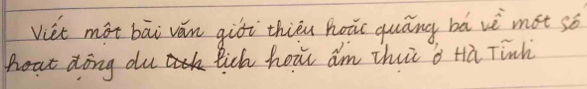 Viết một bài văn giới thiệu hoặc quảng bá về một số
hoạt động du lịch hoặc ẩm thực ở Hà Tĩnh